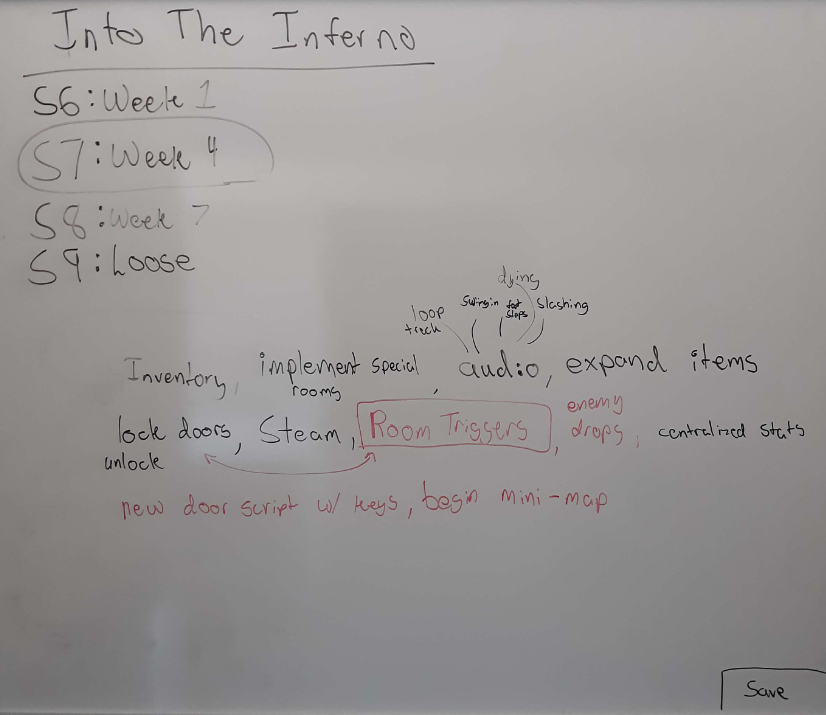 Into The Inferno
S6: Week 1
S7: Week 4
S8: Week 7
S9: Loose
dying
swingin foot steps slashing
loop track
Inventory, implement special rooms, audio, expand items
lock doors, Steam, Room Triggers, enemy drops, centralized stats
unlock
new door script w/ keys, begin mini-map
Save